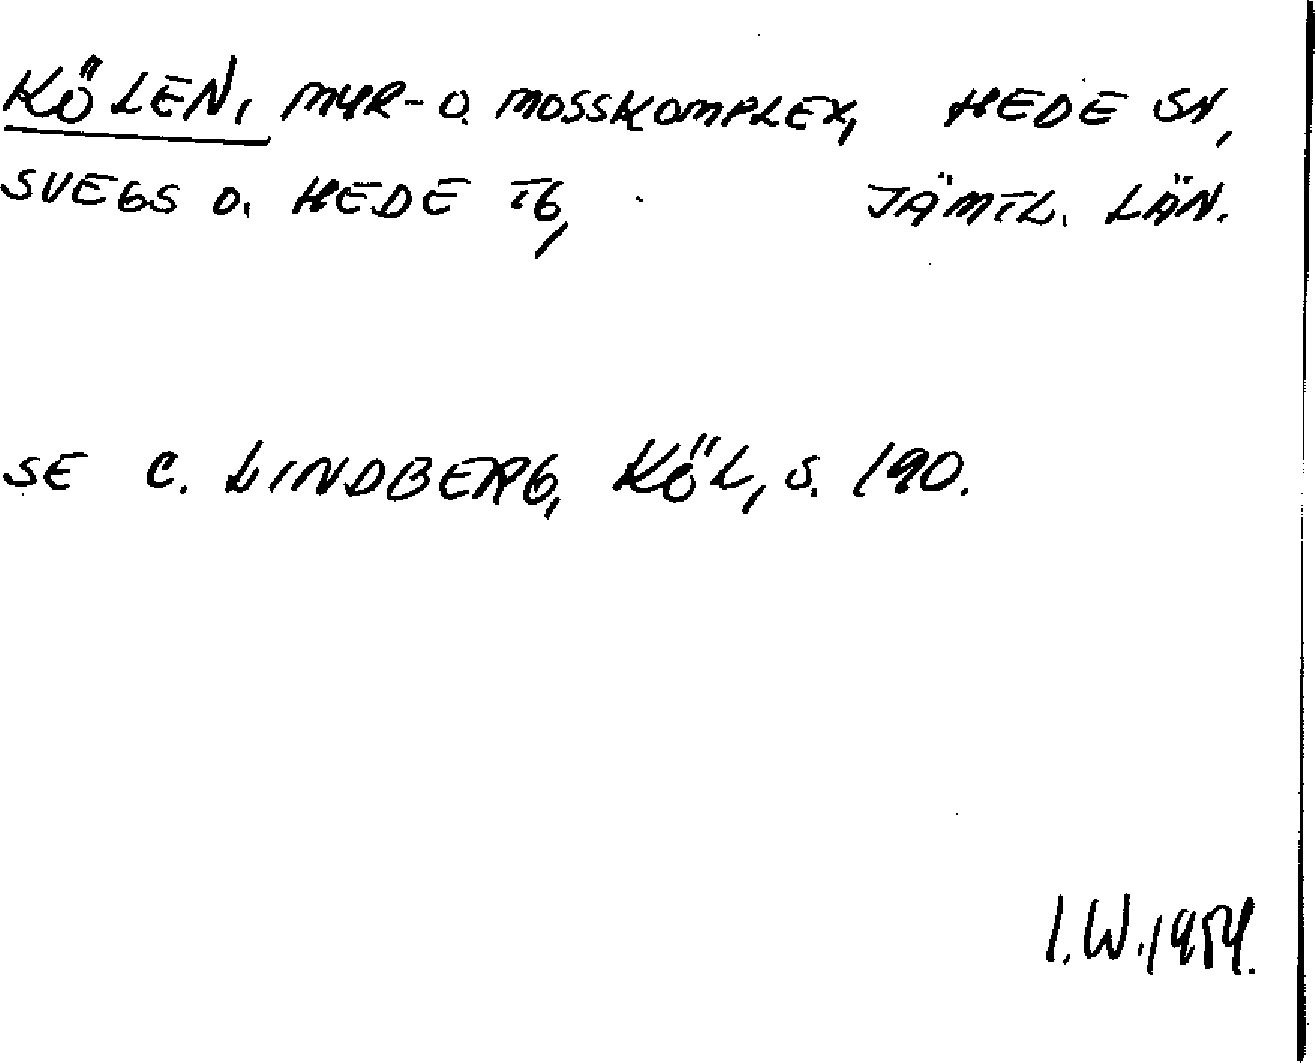 KÖLEN, MYR- O. MOSSKOMPLEX, HEDE SN,
SVEGS O. HEDE TG, JÄMTL. LÄN.
SE C. LINDBERG, KÖL, S. 190.
I.W. 1954.